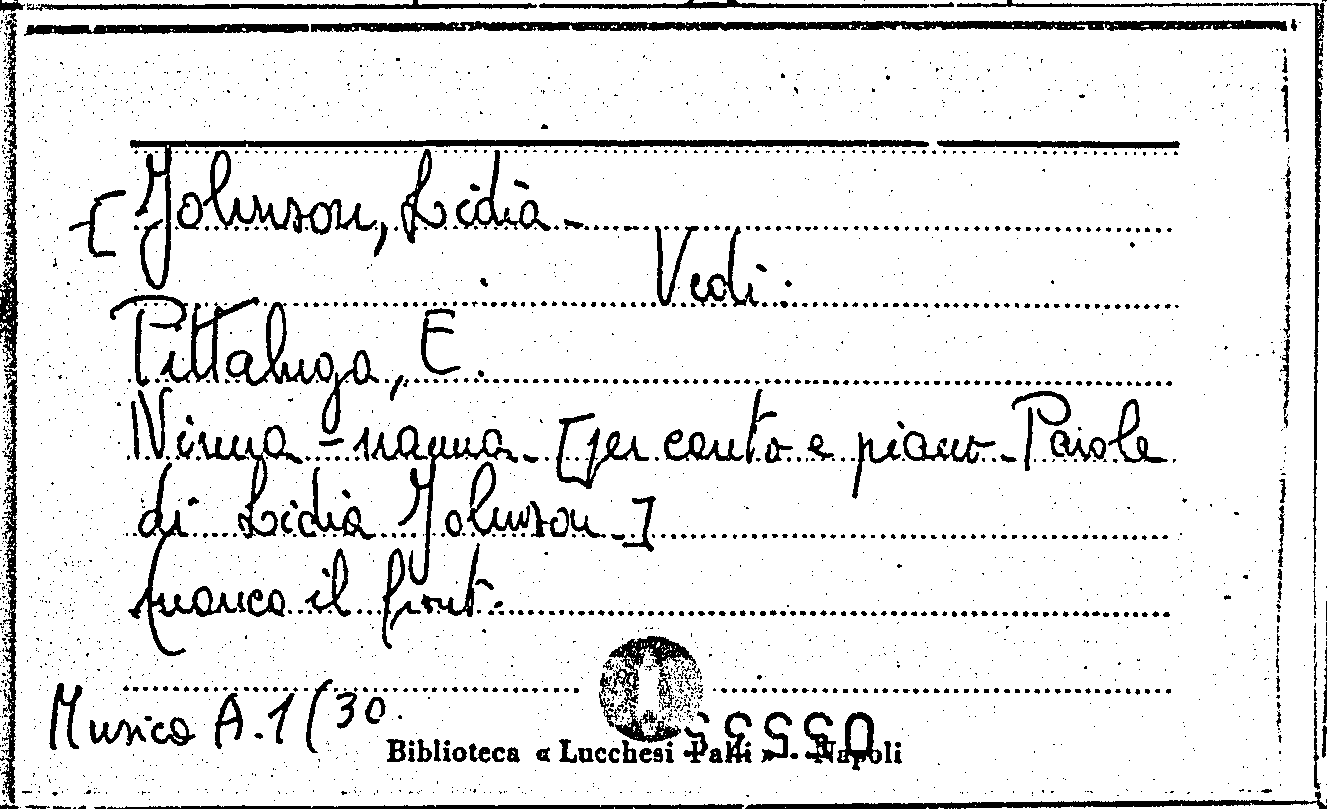 [Johnson, Lidia -
Vedi:
Pittaluga, E.
Ninna-nanna. [per canto e piano - Parole
di Lidia Johnson.]
manca il front.
Musica A.1(30.
Biblioteca « Lucchesi Palli » - Napoli